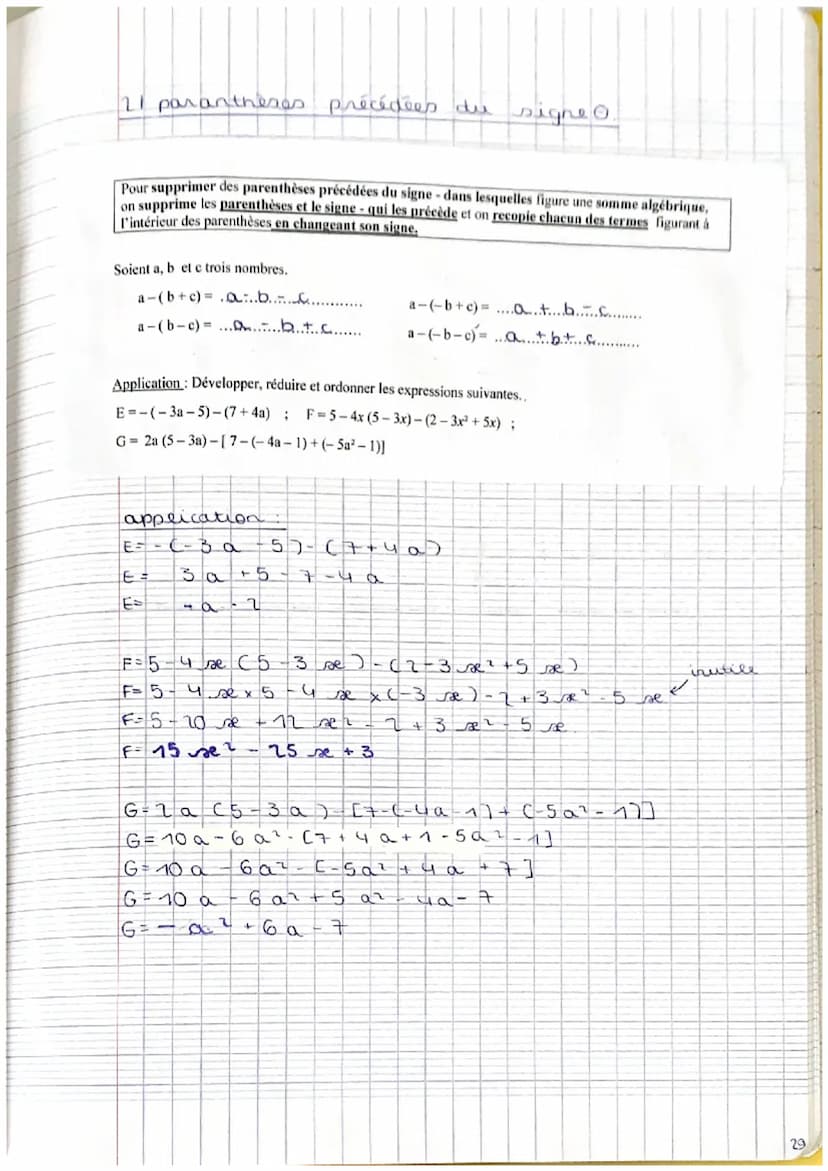 2) paranthèses précédées du signe ⊖.
Pour supprimer des parenthèses précédées du signe - dans lesquelles figure une somme algébrique,
on supprime les parenthèses et le signe - qui les précède et on recopie chacun des termes figurant à
l'intérieur des parenthèses en changeant son signe.
Soient a, b et c trois nombres.
a – ( b + c) = .a.-..b..-..c............
a – (– b + c) = ....a..+...b..-..c........
a – ( b – c) = ...a..-...b..+..c.......
a – (– b – c) = ...a...+.b+...c..........
Application : Développer, réduire et ordonner les expressions suivantes..
E = – ( – 3a – 5) – (7 + 4a) ; F = 5 – 4x (5 – 3x) – (2 – 3x² + 5x) ;
G = 2a (5 – 3a) – [ 7 – (– 4a – 1) + (– 5a² – 1)]
application :
E = - (-3a - 5) - (7 + 4a)
E = 3a + 5 - 7 - 4a
E = - a - 2
F = 5 - 4x (5 - 3x) - (2 - 3x² + 5x)
inutile
F = 5 - 4x × 5 - 4x × (-3x) - 2 + 3x² - 5x
F = 5 - 20x + 12x² - 2 + 3x² - 5x
F = 15x² - 25x + 3
G = 2a (5 - 3a) - [7 - (-4a - 1) + (-5a² - 1)]
G = 10a - 6a² - [7 + 4a + 1 - 5a² - 1]
G = 10a - 6a² - [-5a² + 4a + 7]
G = 10a - 6a² + 5a² - 4a - 7
G = - a² + 6a - 7
29